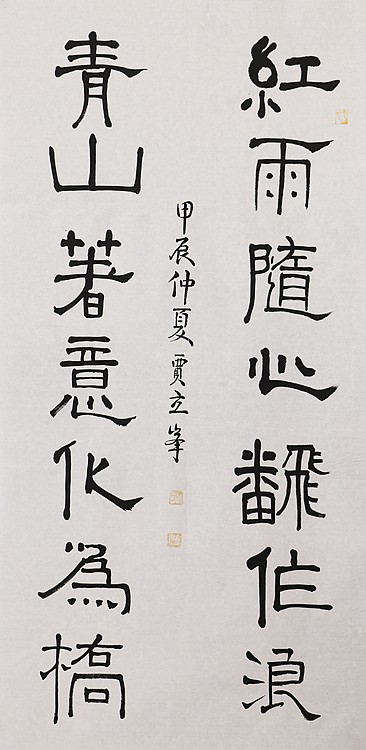 紅雨隨心飜作浪
青山著意化為橋
甲辰仲夏賈立峯